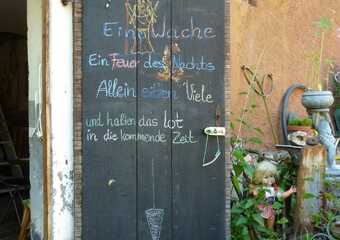 Eine Wache
Ein Feuer des Nachts
Allein sitzen Viele
und halten das Lot
in die kommende Zeit